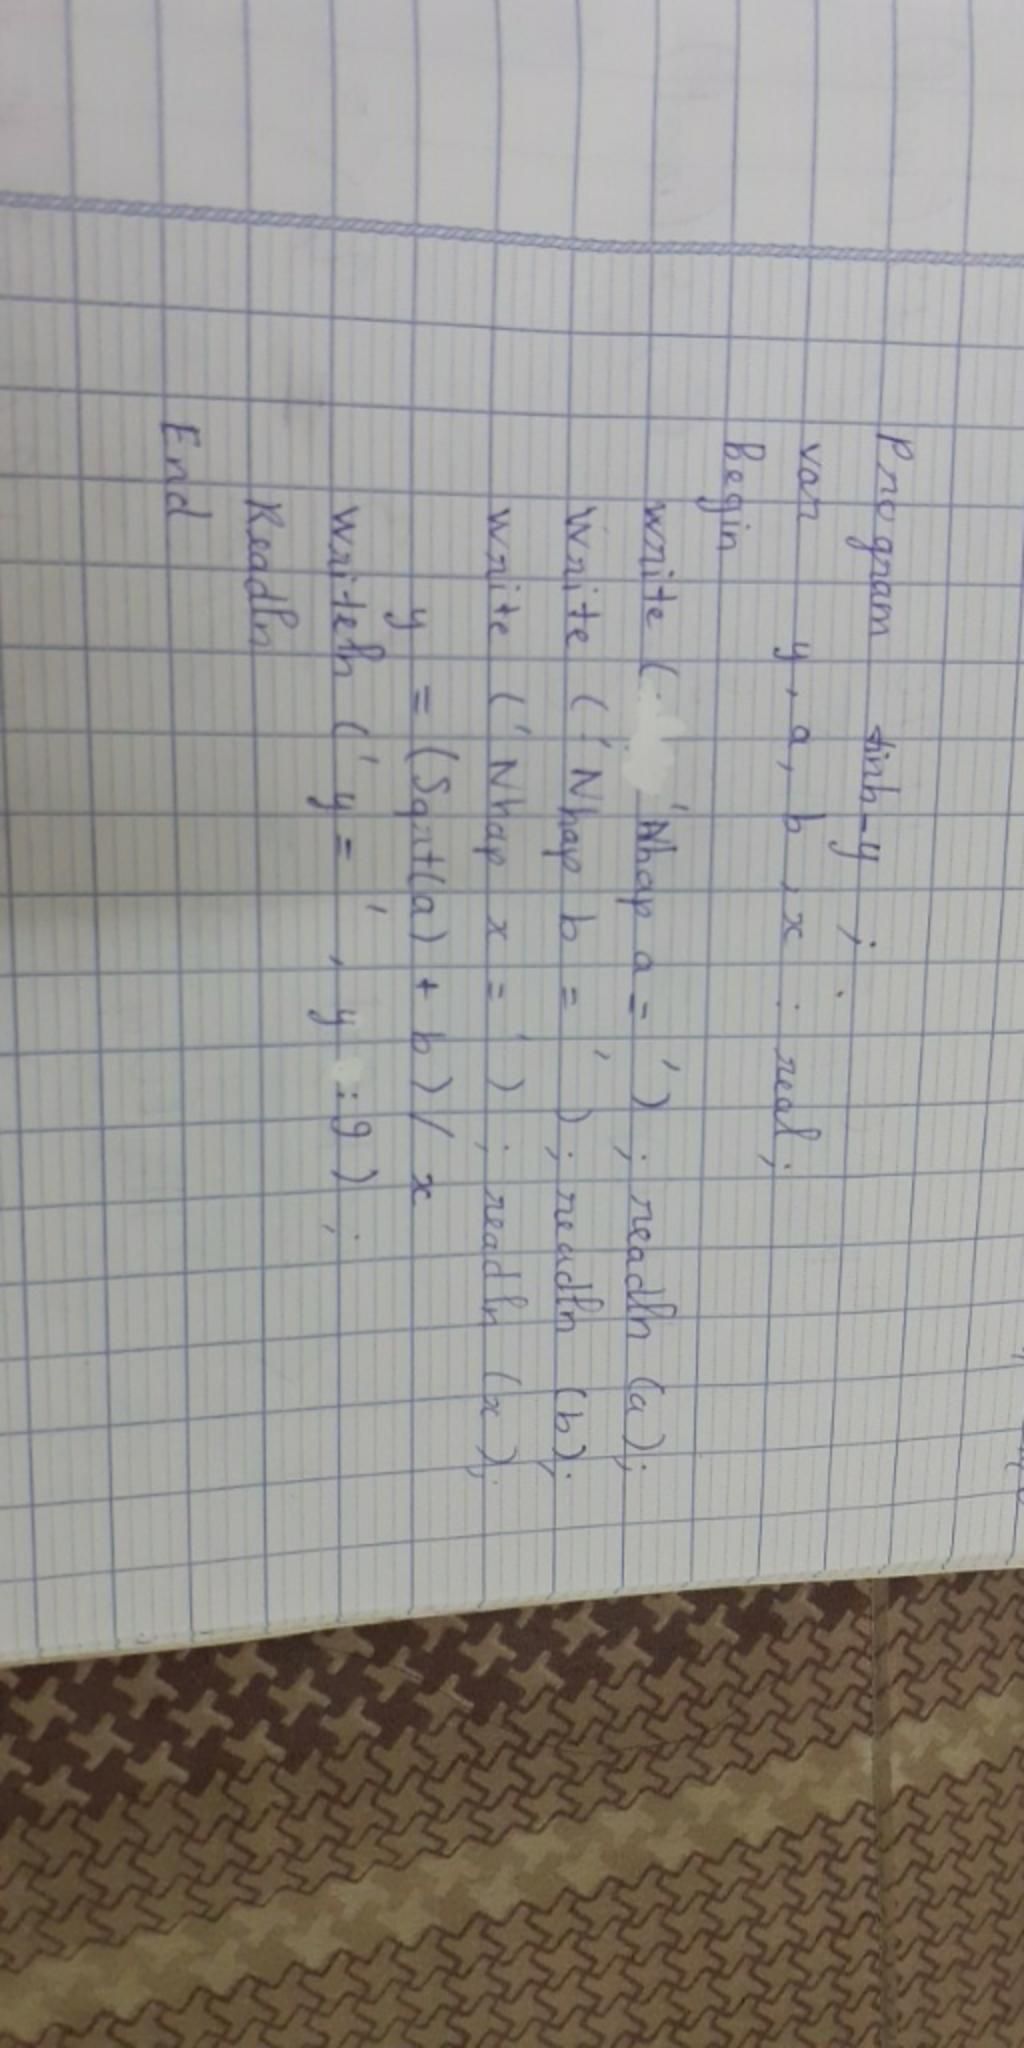 Program tinh-y ;
var y, a, b, x : real;
begin
write ( 'Nhap a = ' ) ; readln (a);
Write ( 'Nhap b = ' ) ; readln (b);
write ( 'Nhap x = ' ) ; readln (x);
y = (Sqrt(a) + b) / x
writeln ( ' y = ' , y :9 ) ;
Readln
End